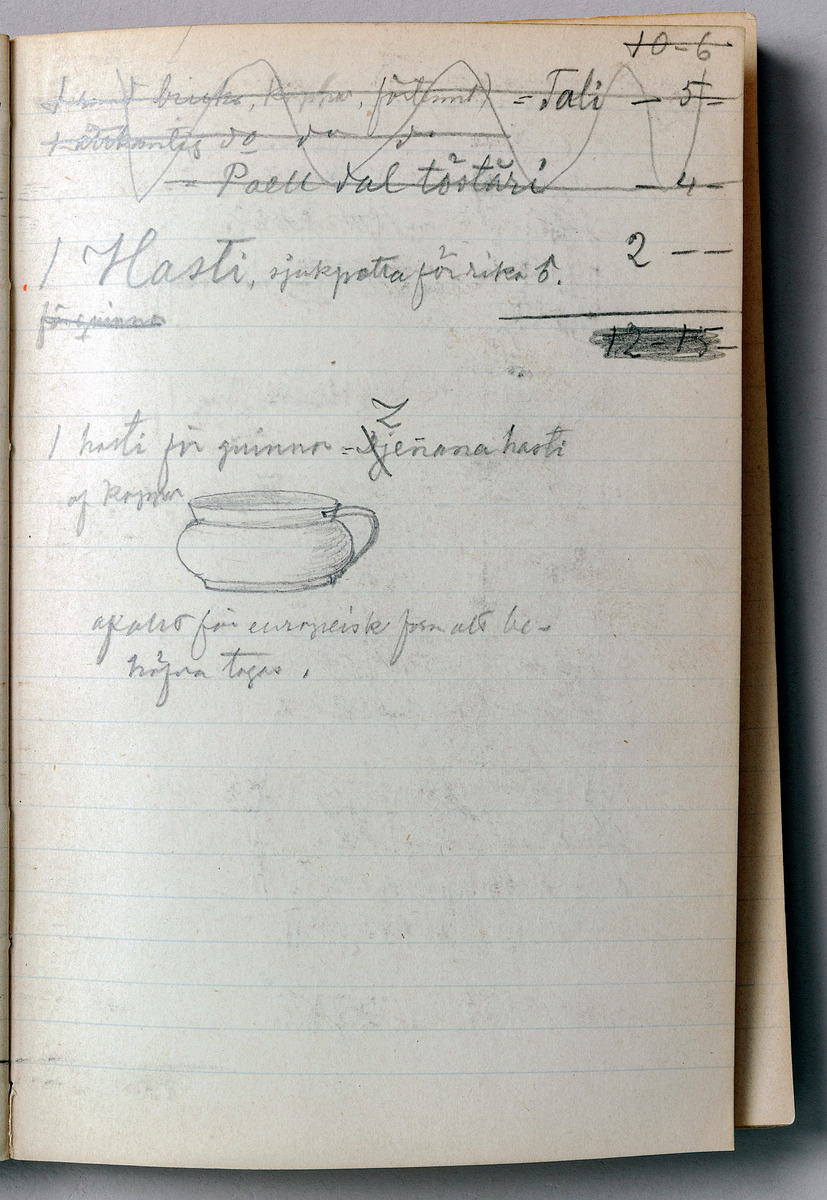 10-6
bricka, koppar, förtennt) = Tali — 5 –
do do do
= Paeu dal töstäri — 4 –
1 Hasti, sjukpotta för rika 2 – –
för quinnor
12-15-
1 hasti för quinnor = Zjenana hasti
af koppar
för europeisk form att be-
höfva tagas.